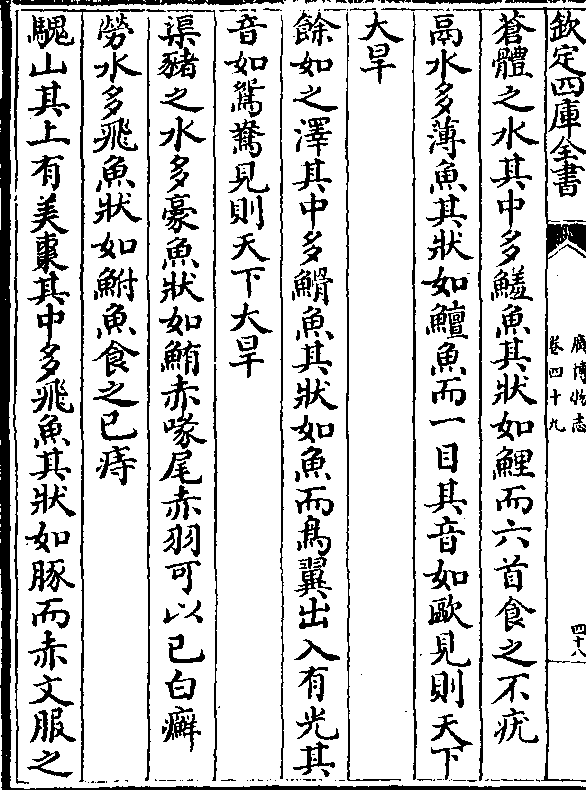 欽定四庫全書
廣博物志
卷四十九
四十八
蒼體之水其中多鱃魚其狀如鯉而六首食之不疣
鬲水多薄魚其狀如鱣魚而一目其音如歐見則天下
大旱
餘如之澤其中多䱻魚其狀如魚而鳥翼出入有光其
音如鴛鴦見則天下大旱
渠豬之水多豪魚狀如鮪赤喙尾赤羽可以已白癬
勞水多飛魚狀如鮒魚食之已痔
騩山其上有美棗其中多飛魚其狀如豚而赤文服之